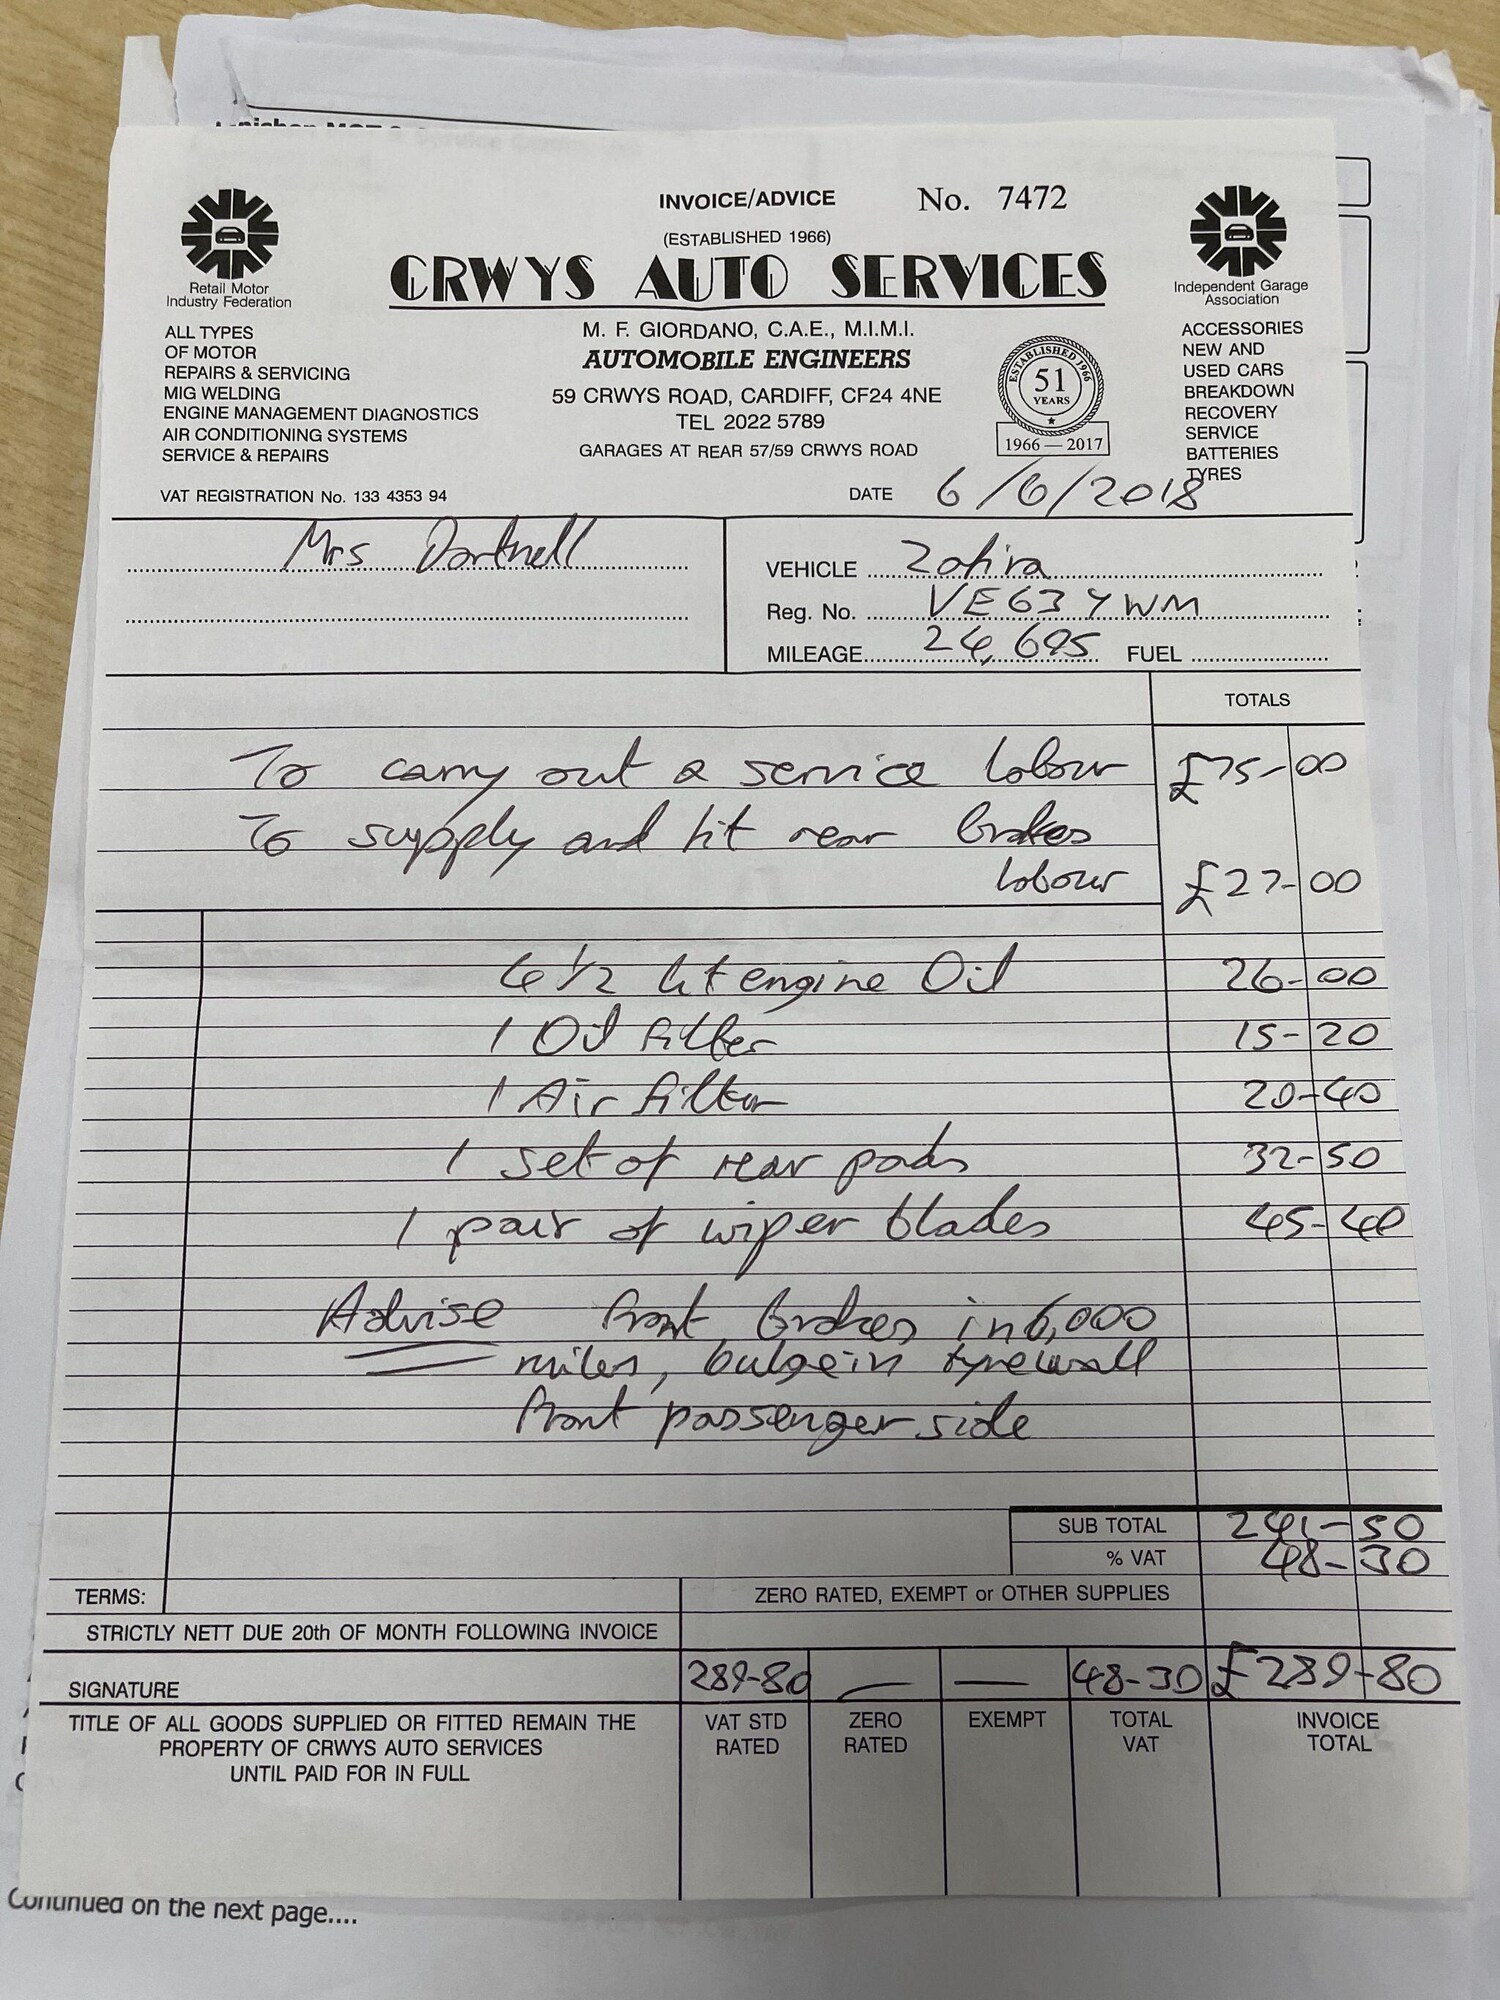 INVOICE/ADVICE No. 7472
(ESTABLISHED 1966)
CRWYS AUTO SERVICES
Retail Motor
Industry Federation
Independent Garage
Association
M. F. GIORDANO, C.A.E., M.I.M.I.
AUTOMOBILE ENGINEERS
59 CRWYS ROAD, CARDIFF, CF24 4NE
TEL 2022 5789
GARAGES AT REAR 57/59 CRWYS ROAD
ALL TYPES
OF MOTOR
REPAIRS & SERVICING
MIG WELDING
ENGINE MANAGEMENT DIAGNOSTICS
AIR CONDITIONING SYSTEMS
SERVICE & REPAIRS
ESTABLISHED 1966
51
YEARS
1966 — 2017
ACCESSORIES
NEW AND
USED CARS
BREAKDOWN
RECOVERY
SERVICE
BATTERIES
TYRES
VAT REGISTRATION No. 133 4353 94
DATE 6/6/2018
Mrs Dartnell
VEHICLE Zafira
Reg. No. VE63 YWM
MILEAGE 24,695 FUEL
TOTALS
To carry out a service labour £75-00
To supply and fit rear brakes
labour £27-00
6 1/2 lit engine Oil 26-00
1 Oil filter 15-20
1 Air filter 20-40
1 set of rear pads 32-50
1 pair of wiper blades 45-40
Advise front brakes in 6,000
miles, bulge in tyre wall
front passenger side
SUB TOTAL 241-50
% VAT 48-30
TERMS:
ZERO RATED, EXEMPT or OTHER SUPPLIES
STRICTLY NETT DUE 20th OF MONTH FOLLOWING INVOICE
SIGNATURE
289-80 — — 48-30 £289-80
TITLE OF ALL GOODS SUPPLIED OR FITTED REMAIN THE
PROPERTY OF CRWYS AUTO SERVICES
UNTIL PAID FOR IN FULL
VAT STD
RATED
ZERO
RATED
EXEMPT
TOTAL
VAT
INVOICE
TOTAL
Continued on the next page....